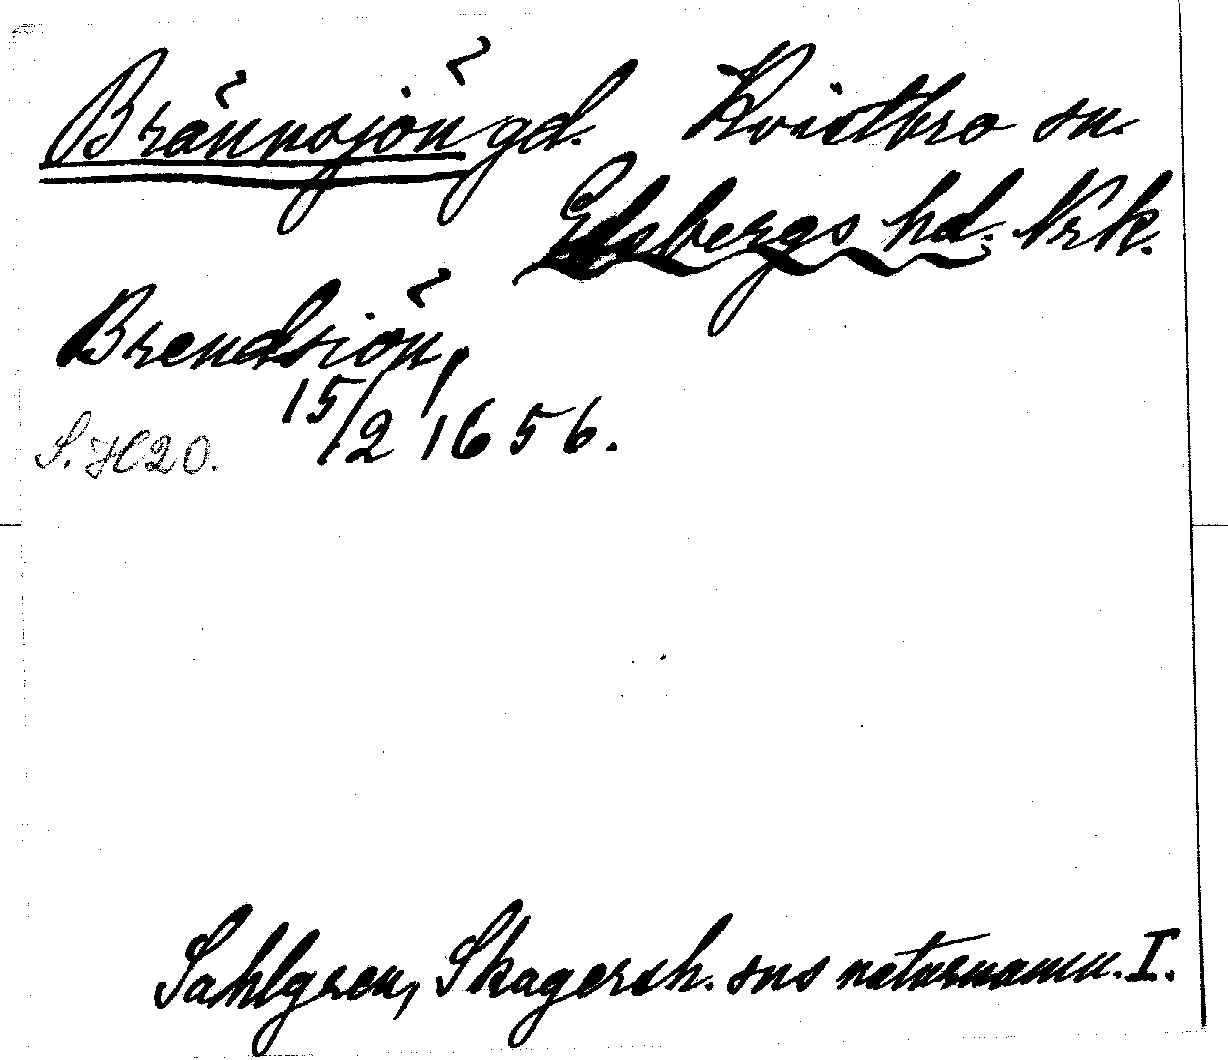 Brännsjön gd. Kvistbro sn.
Edsbergs hd. Nrk.
Brendsiön,
15/2 1656.
S. H 20.
Sahlgren, Skagersh. sns naturnamn. I.